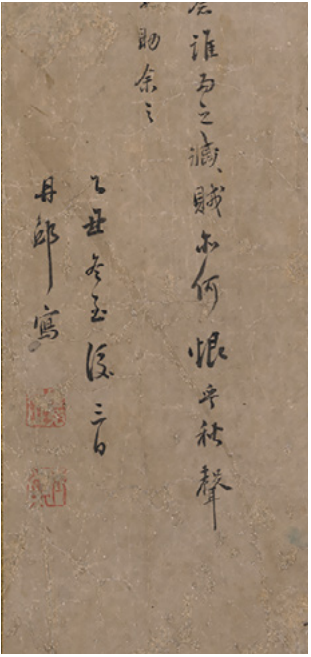 誰爲之戕賊亦何恨乎秋聲
助余之
乙丑冬至後三日
丹邱寫